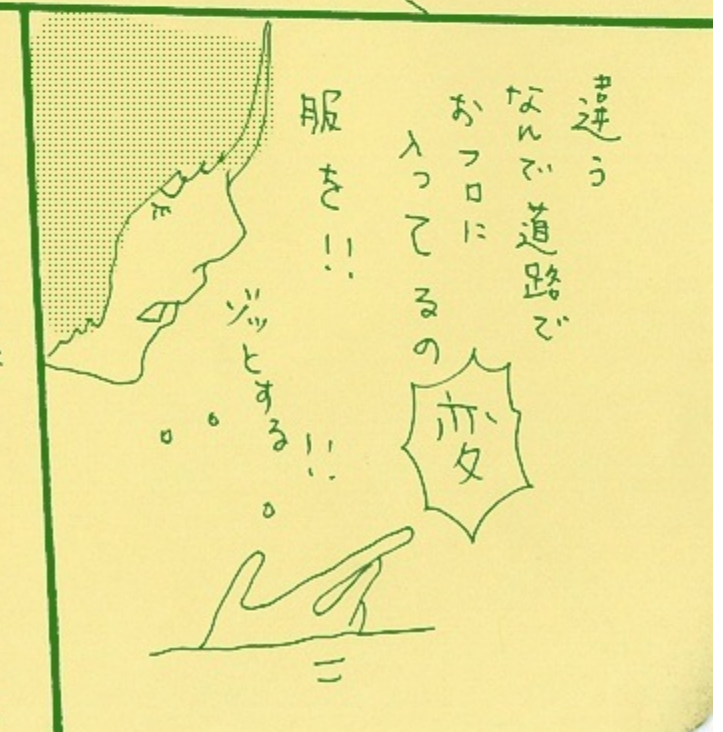 違う
なんで道路で
おフロに
入ってるの
変
服を!!
ゾッとする!!